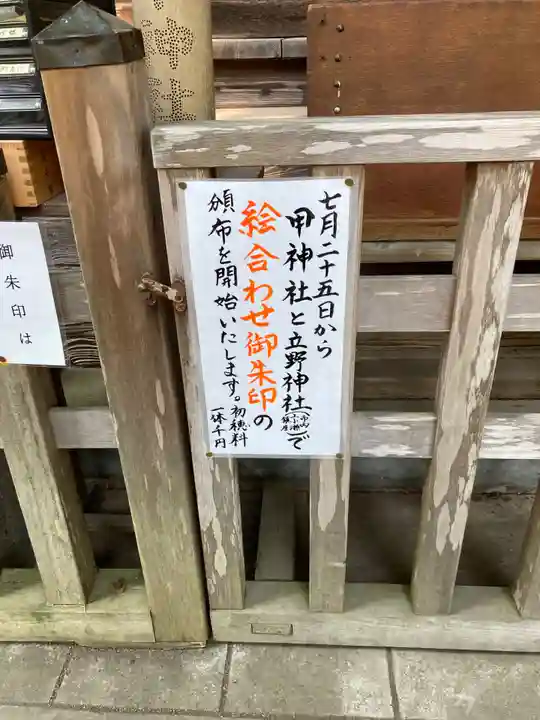 七月二十五日から
甲神社と立野神社で
絵合わせ御朱印の
頒布を開始いたします。初穂料
一体千円
御朱印は